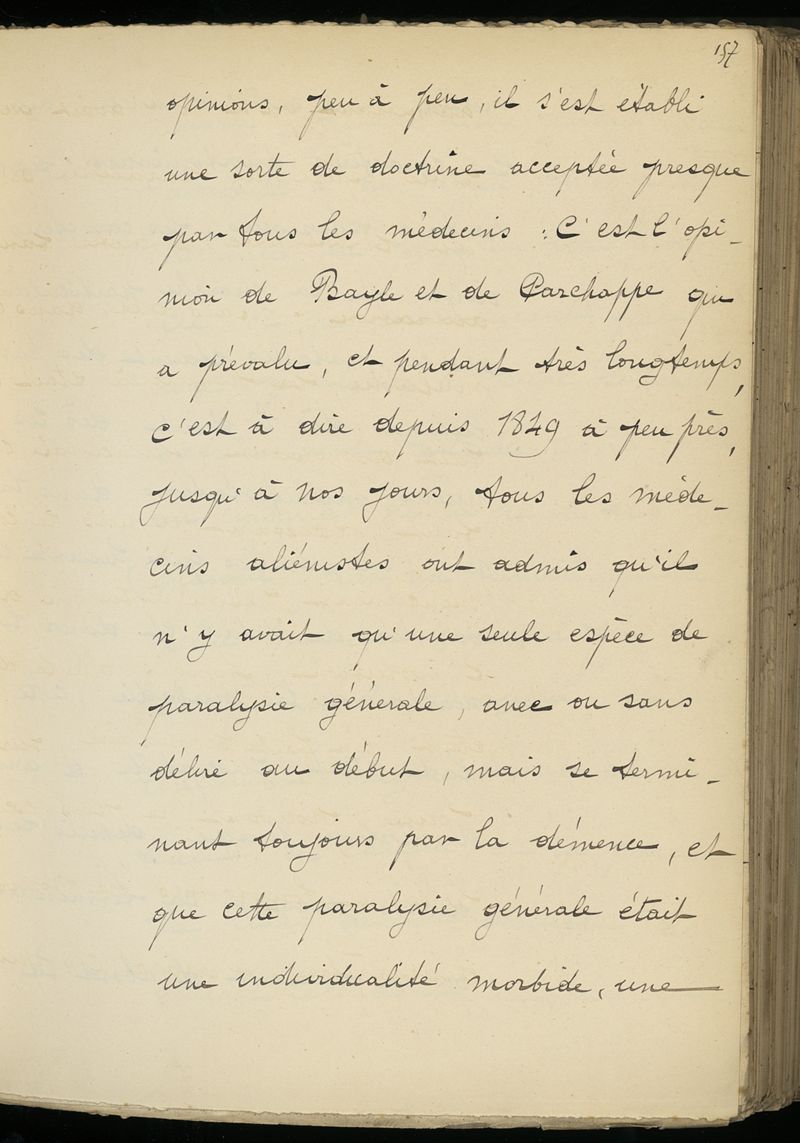 157
opinions, peu à peu, il s'est établi
une sorte de doctrine acceptée presque
par tous les médecins : C'est l'opi-
nion de Bayle et de Parchappe qui
a prévalu, et pendant très longtemps,
c'est à dire depuis 1849 à peu près,
jusqu'à nos jours, tous les méde-
cins aliénistes ont admis qu'il
n'y avait qu'une seule espèce de
paralysie générale, avec ou sans
délire au début, mais se termi-
nant toujours par la démence, et
que cette paralysie générale était
une individualité morbide, une